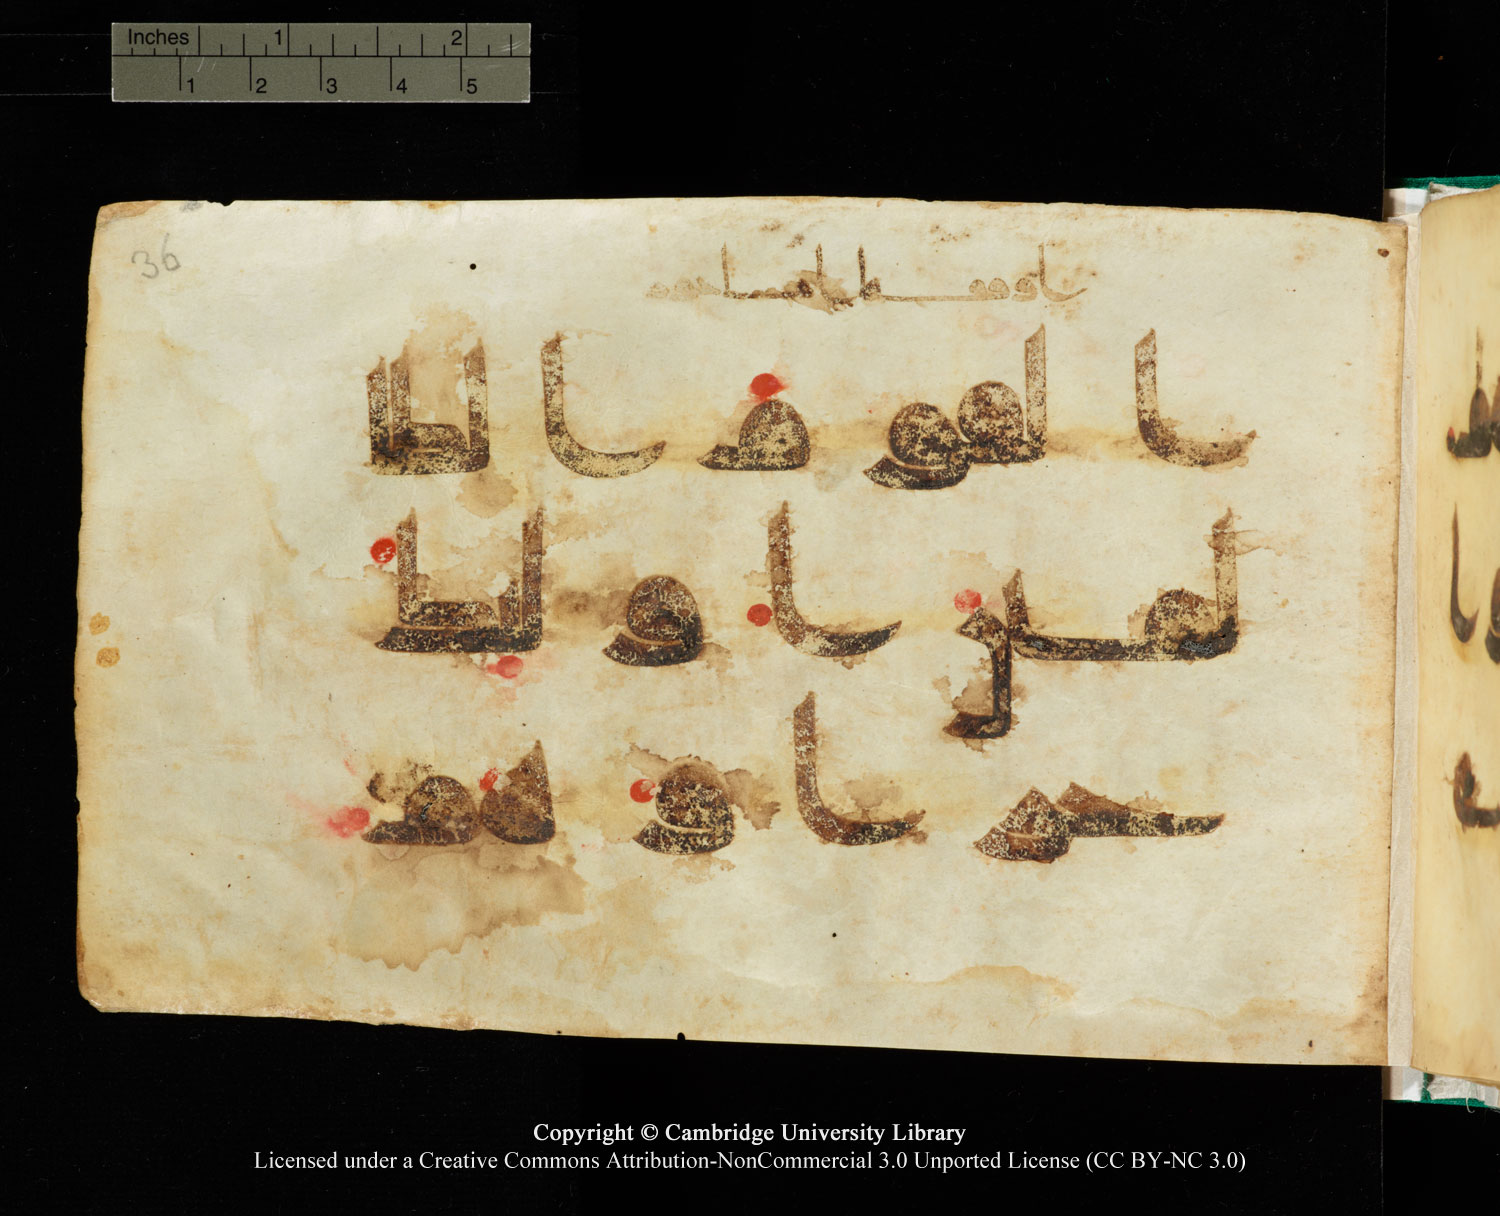 Inches 1 2
1 2 3 4 5
36
القوم الظا
لمين اولئك
جزاوهم
Copyright © Cambridge University Library
Licensed under a Creative Commons Attribution-NonCommercial 3.0 Unported License (CC BY-NC 3.0)